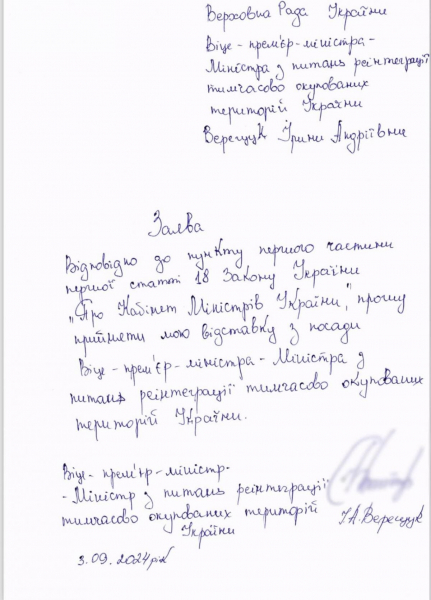 Верховна Рада України
Віце-прем'єр-міністра-
Міністра з питань реінтеграції
тимчасово окупованих
територій України
Верещук Ірини Андріївни
Заява
Відповідно до пункту першого частини
першої статті 18 Закону України
"Про Кабінет Міністрів України", прошу
прийняти мою відставку з посади
Віце-прем'єр-міністра-Міністра з
питань реінтеграції тимчасово окупованих
територій України.
Віце-прем'єр-міністр-
-Міністр з питань реінтеграції
тимчасово окупованих територій
України
І.А.Верещук
3.09.2024рік